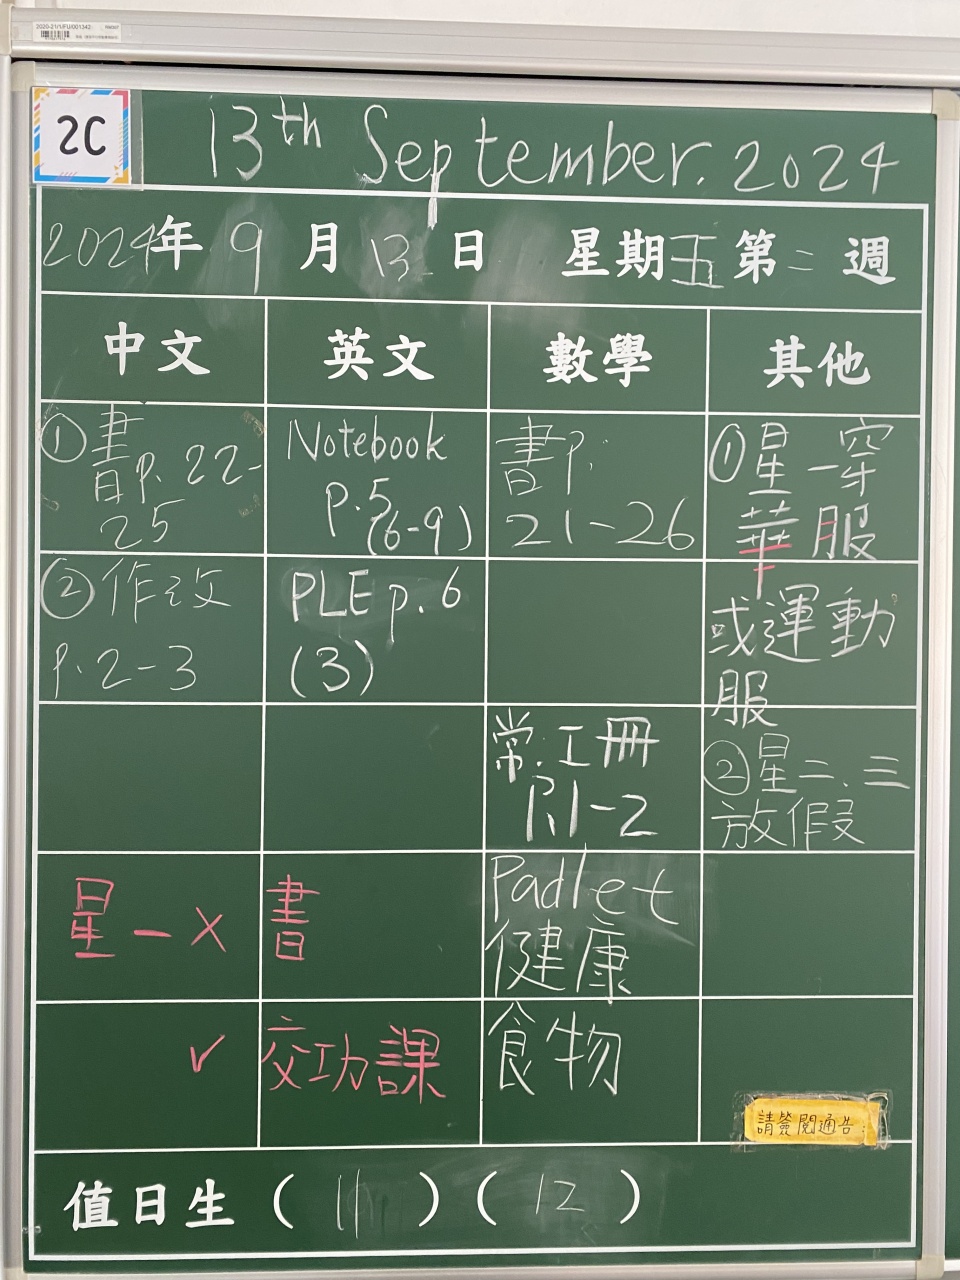 2020-21/1/FU/001342
2C
13th September. 2024
2024年 9 月 13 日 星期五 第二週
中文 英文 數學 其他
①書p. 22-
25
Notebook
p.5
(6-9)
書p.
21-26
①星一穿
華服
②作改
p.2-3
PLE p. 6
(3)
或運動
服
常.工冊
P.1-2
②星二、三
放假
星一 x 書
Padlet
健康
✓ 交功課
食物
請簽閱通告
值日生 ( 11 ) ( 12 )